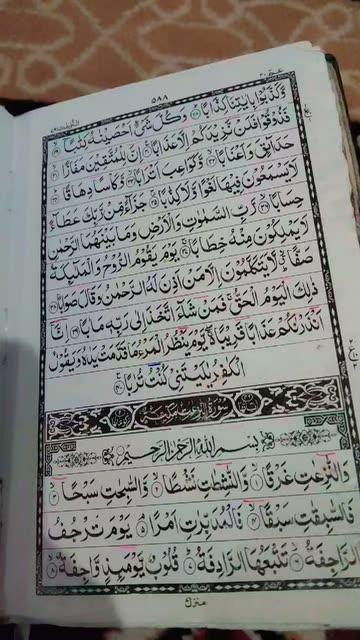 ۵۸۸
وَّكَذَّبُوْا بِاٰيٰتِنَا كِذَّابًا ۲۸ وَكُلَّ شَيْءٍ اَحْصَيْنٰهُ كِتٰبًا ۲۹
فَذُوْقُوْا فَلَنْ نَّزِيْدَكُمْ اِلَّا عَذَابًا ۳۰ اِنَّ لِلْمُتَّقِيْنَ مَفَازًا ۳۱
حَدَآئِقَ وَاَعْنَابًا ۳۲ وَّكَوَاعِبَ اَتْرَابًا ۳۳ وَّكَاْسًا دِهَاقًا ۳۴
لَا يَسْمَعُوْنَ فِيْهَا لَغْوًا وَّلَا كِذّٰبًا ۳۵ جَزَآءً مِّنْ رَّبِّكَ عَطَآءً
حِسَابًا ۳۶ رَّبِّ السَّمٰوٰتِ وَالْاَرْضِ وَمَا بَيْنَهُمَا الرَّحْمٰنِ
لَا يَمْلِكُوْنَ مِنْهُ خِطَابًا ۳۷ يَوْمَ يَقُوْمُ الرُّوْحُ وَالْمَلٰٓئِكَةُ
صَفًّا لَّا يَتَكَلَّمُوْنَ اِلَّا مَنْ اَذِنَ لَهُ الرَّحْمٰنُ وَقَالَ صَوَابًا ۳۸
ذٰلِكَ الْيَوْمُ الْحَقُّ فَمَنْ شَآءَ اتَّخَذَ اِلٰى رَبِّهٖ مَاٰبًا ۳۹ اِنَّآ
اَنْذَرْنٰكُمْ عَذَابًا قَرِيْبًا يَّوْمَ يَنْظُرُ الْمَرْءُ مَا قَدَّمَتْ يَدٰهُ وَيَقُوْلُ
الْكٰفِرُ يٰلَيْتَنِيْ كُنْتُ تُرٰبًا ۴۰
سُوْرَةُ النّٰزِعٰتِ مَكِّيَّةٌ
بِسْمِ اللّٰهِ الرَّحْمٰنِ الرَّحِيْمِ
وَالنّٰزِعٰتِ غَرْقًا ۱ وَّالنّٰشِطٰتِ نَشْطًا ۲ وَّالسّٰبِحٰتِ سَبْحًا ۳
فَالسّٰبِقٰتِ سَبْقًا ۴ فَالْمُدَبِّرٰتِ اَمْرًا ۵ يَوْمَ تَرْجُفُ
الرَّاجِفَةُ ۶ تَتْبَعُهَا الرَّادِفَةُ ۷ قُلُوْبٌ يَّوْمَئِذٍ وَّاجِفَةٌ ۸
منزل